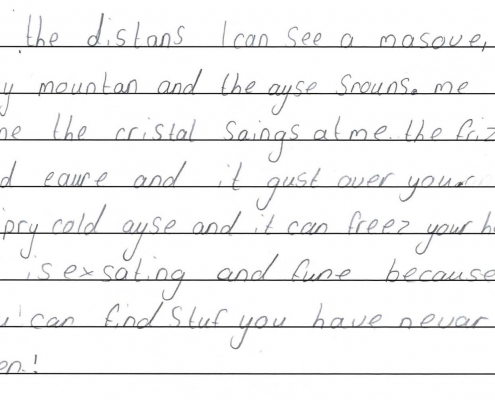 the distans I can see a masove,
y mountan and the ayse srouns. me
ne the cristal saings at me. the friz
d eaure and it gust over your
ipry cold ayse and it can freez your h
is exsating and fune because
u can find Stuf you have nevar
en!